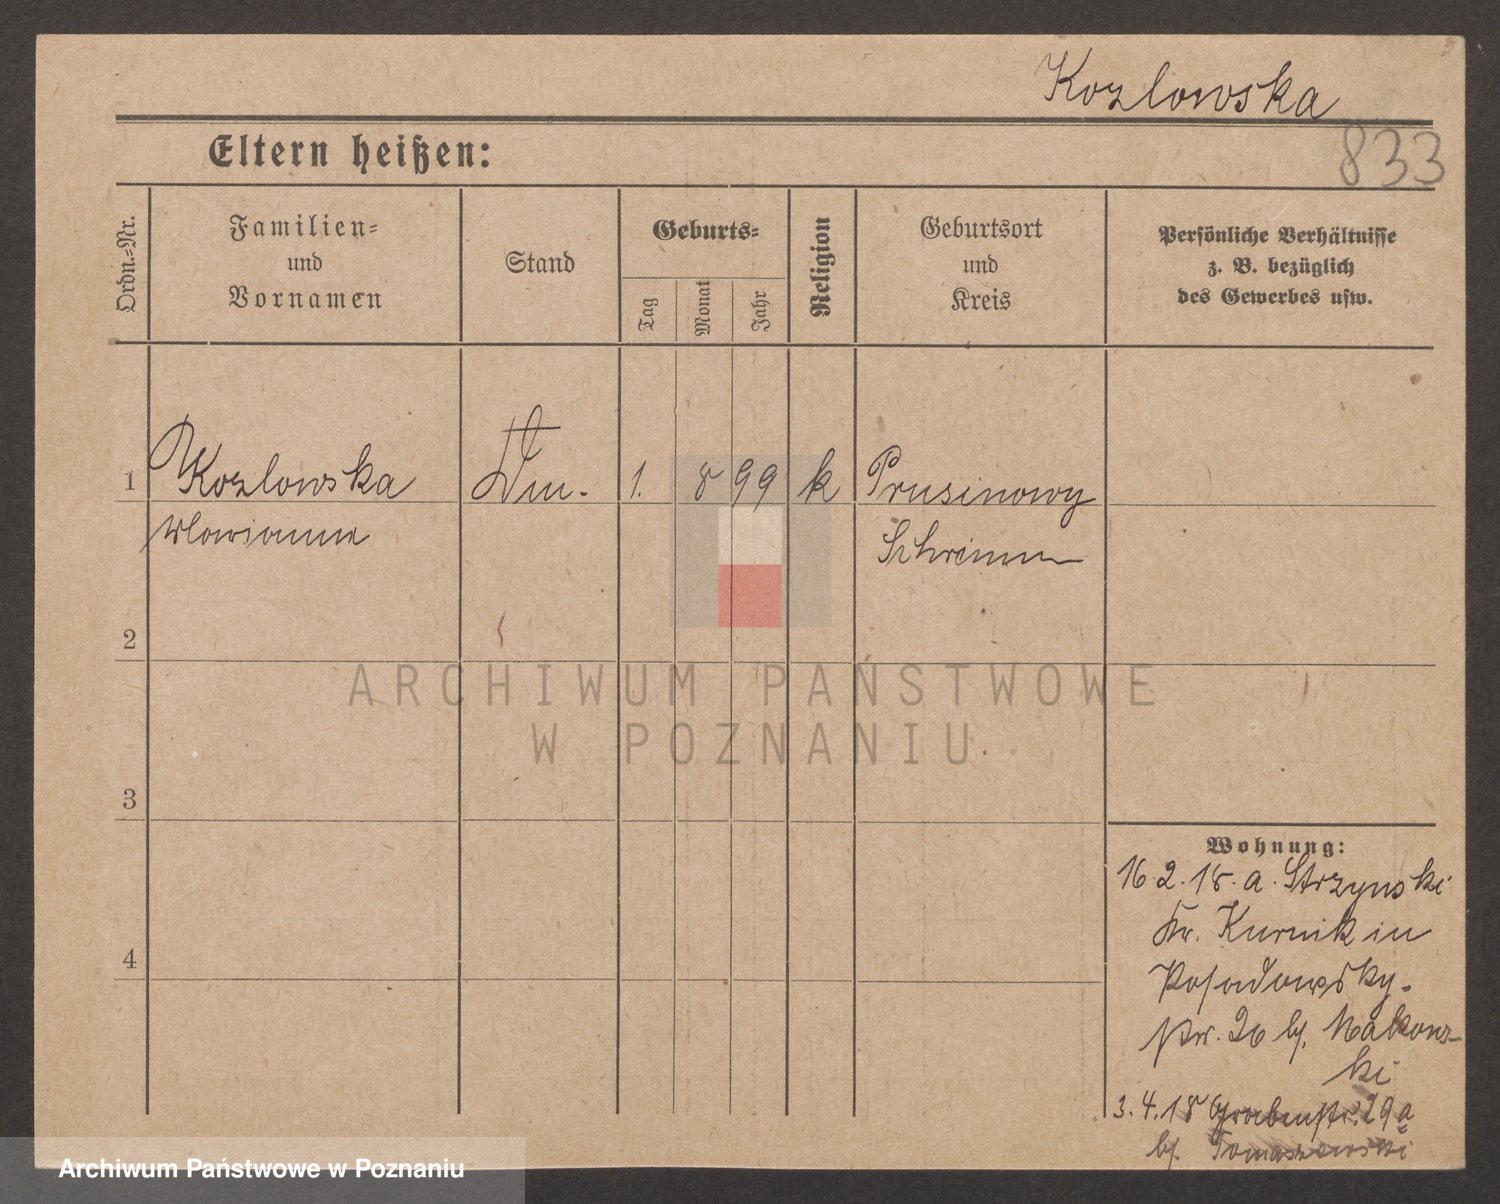 Kozlowska
833
Eltern heißen:
Ordn.-Nr.
Familien-
und
Vornamen
Stand
Geburts-
Tag
Monat
Jahr
Religion
Geburtsort
und
Kreis
Persönliche Verhältnisse
z. B. bezüglich
des Gewerbes usw.
1 Kozlowska 1. 8 99 k Prusinowy
Marianna Schrimm
2
3
4
ARCHIWUM PAŃSTWOWE
W POZNANIU
Wohnung:
16.2.18. a. Strzynski
Kr. Kurnik in
Posadowsky-
str. 26 bj. Makows-
ki
3.4.18 Grabenstr. 29a
bj. Tomaszewski
Archiwum Państwowe w Poznaniu